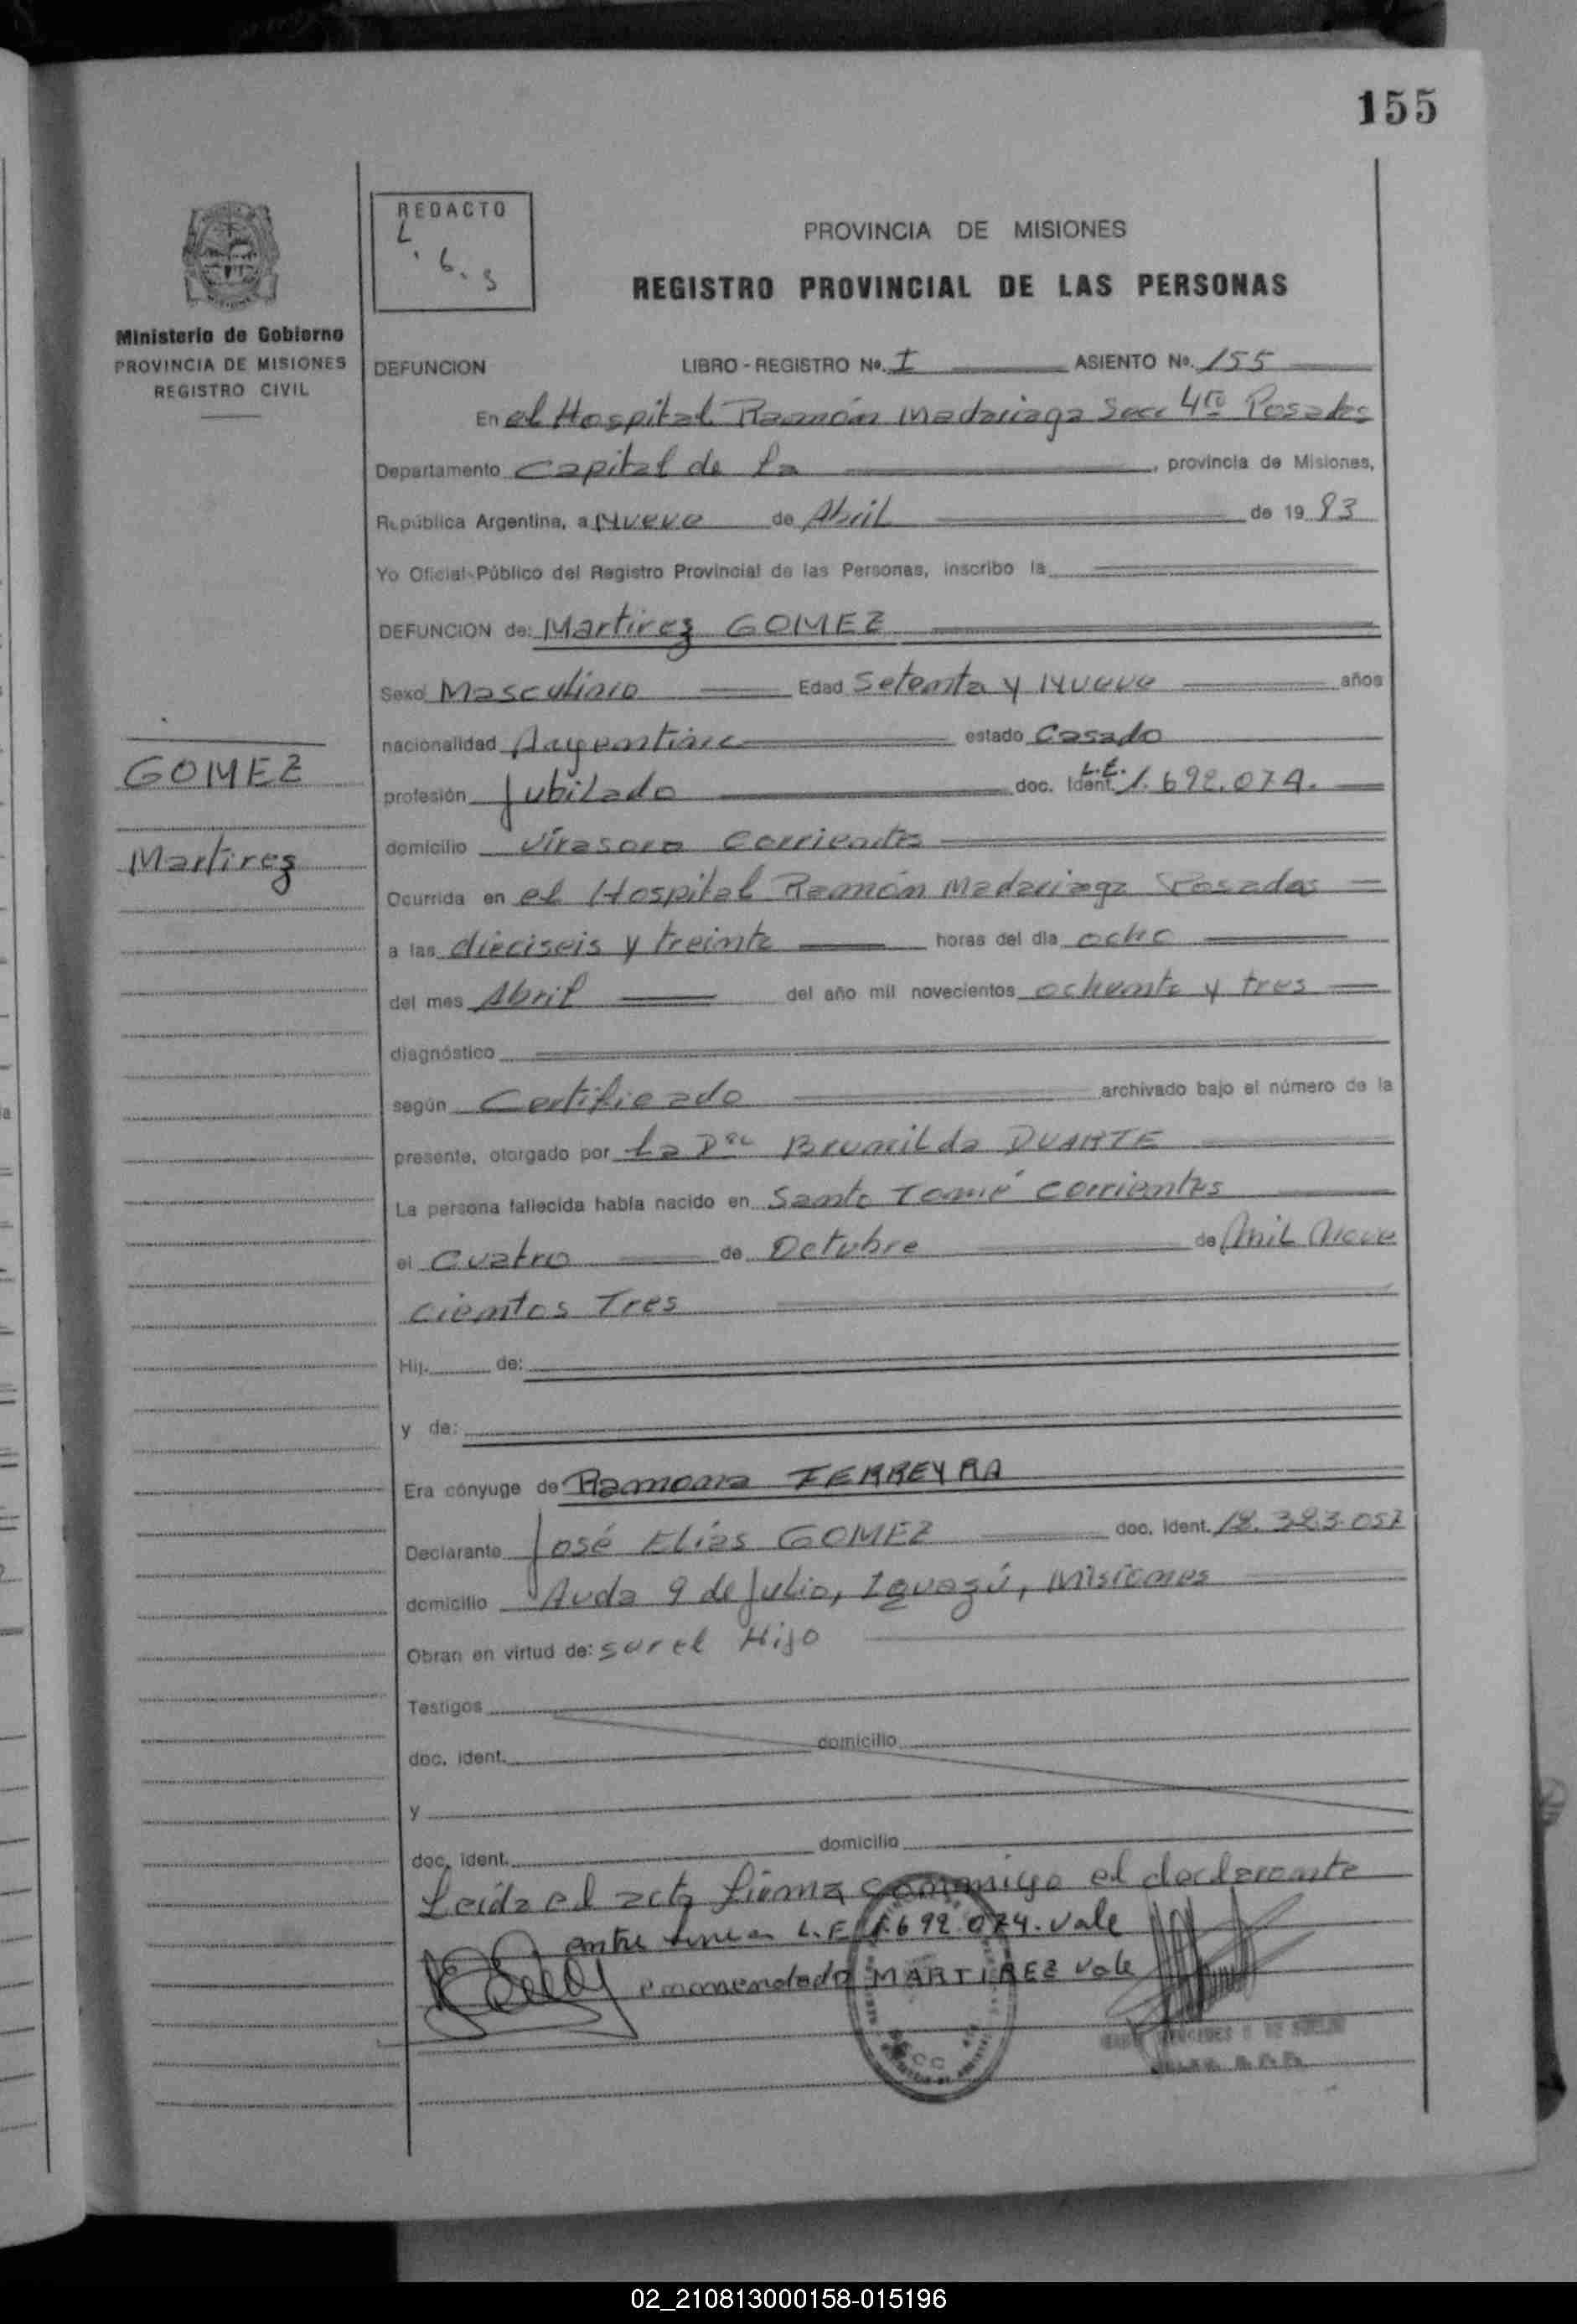 155
REDACTO
L. G. S
PROVINCIA DE MISIONES
REGISTRO PROVINCIAL DE LAS PERSONAS
Ministerio de Gobierno
PROVINCIA DE MISIONES
REGISTRO CIVIL
DEFUNCION LIBRO - REGISTRO No. I ASIENTO No. 155
En el Hospital Ramón Madariaga Secc 4ta Posadas
Departamento Capital de la , provincia de Misiones,
República Argentina, a Nueve de Abril de 19 83
Yo Oficial Público del Registro Provincial de las Personas, inscribo la
DEFUNCION de: Martirez GOMEZ
Sexo Masculino Edad Setenta y Nueve años
nacionalidad Argentina estado Casado
GOMEZ
profesión Jubilado doc. Ident. L.E. 1.692.074.
domicilio Virasoro Corrientes
Martirez
Ocurrida en el Hospital Ramón Madariaga Posadas
a las dieciseis y treinta horas del día ocho
del mes Abril del año mil novecientos ochenta y tres
diagnóstico
según Certificado archivado bajo el número de la
presente, otorgado por La Dra Brunilda DUARTE
La persona fallecida había nacido en Santo Tomé Corrientes
el Cuatro de Octubre de Mil Nove
cientos Tres
Hij. de:
y de:
Era cónyuge de Ramona FERREYRA
Declarante José Elías GOMEZ doc. Ident. 12.323.057
domicilio Avda 9 de Julio, Iguazú, Misiones
Obran en virtud de: ser el Hijo
Testigos
doc. ident. domicilio
y
doc. ident. domicilio
Leida el acta firma conmigo el declarante
entre lineas L.E 1.692.074. vale
enmendado MARTIREZ vale
SECC
02_210813000158-015196